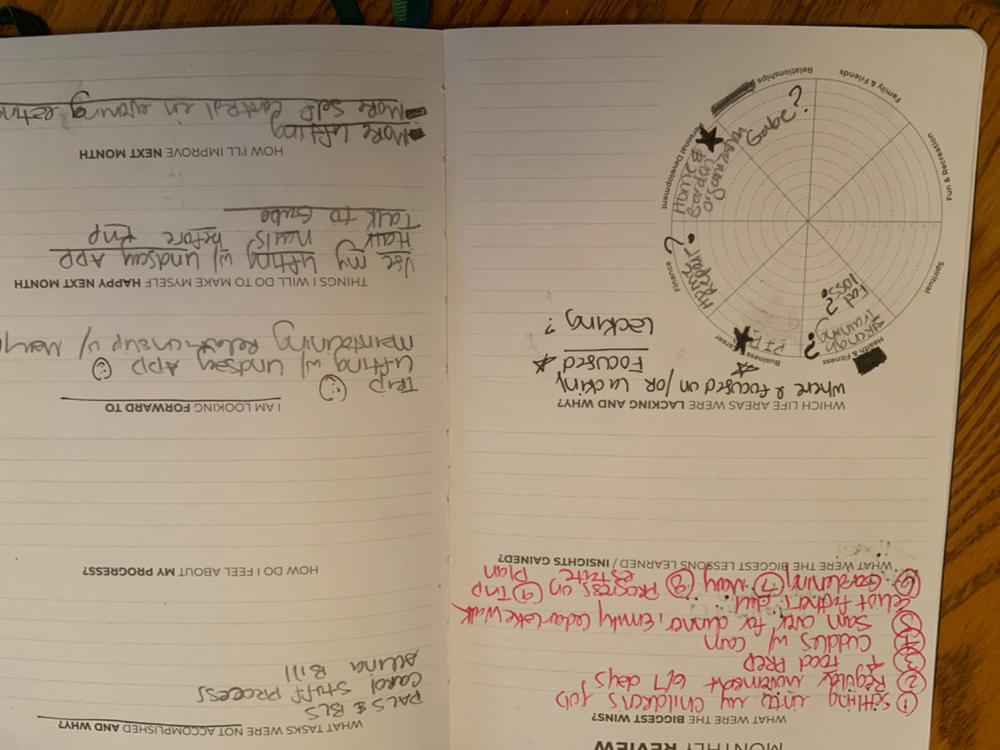 MONTHLY REVIEW
WHAT WERE THE BIGGEST WINS?
① settling into my childrens job
② Regular movement 6/7 days
③ ↑ FOOD PREP
④ cuddles w/ cam
⑤ Sam over for dinner, Emily Cedar Lake Walk
eliot father's day
⑥ Gardening ⑦ Mary ⑧ Progress on estate ⑨ Trip Plan
WHAT WERE THE BIGGEST LESSONS LEARNED / INSIGHTS GAINED?
WHICH LIFE AREAS WERE LACKING AND WHY?
Where I focused on/or Lacking
FOCUSED ☆
Lacking ?
Health & Fitness
Strength Training
Fat loss?
?
Business
Career
Spiritual
Finance
Home Repair ?
Fun & Recreation
Personal Development
Home & Garden organization
Family & Friends
Relationships
Gabe?
WHAT TASKS WERE NOT ACCOMPLISHED AND WHY?
PALS & BLS
Carol Stuff Process
Allina Bill
HOW DO I FEEL ABOUT MY PROGRESS?
I AM LOOKING FORWARD TO
Trip
Lifting w/ Lindsay App
maintaining Relationship w/
THINGS I WILL DO TO MAKE MYSELF HAPPY NEXT MONTH
Use my Lifting w/ Lindsay App
Hair nails before trip
Talk to Gabe
HOW I'LL IMPROVE NEXT MONTH
More Lifting
More self control in evening